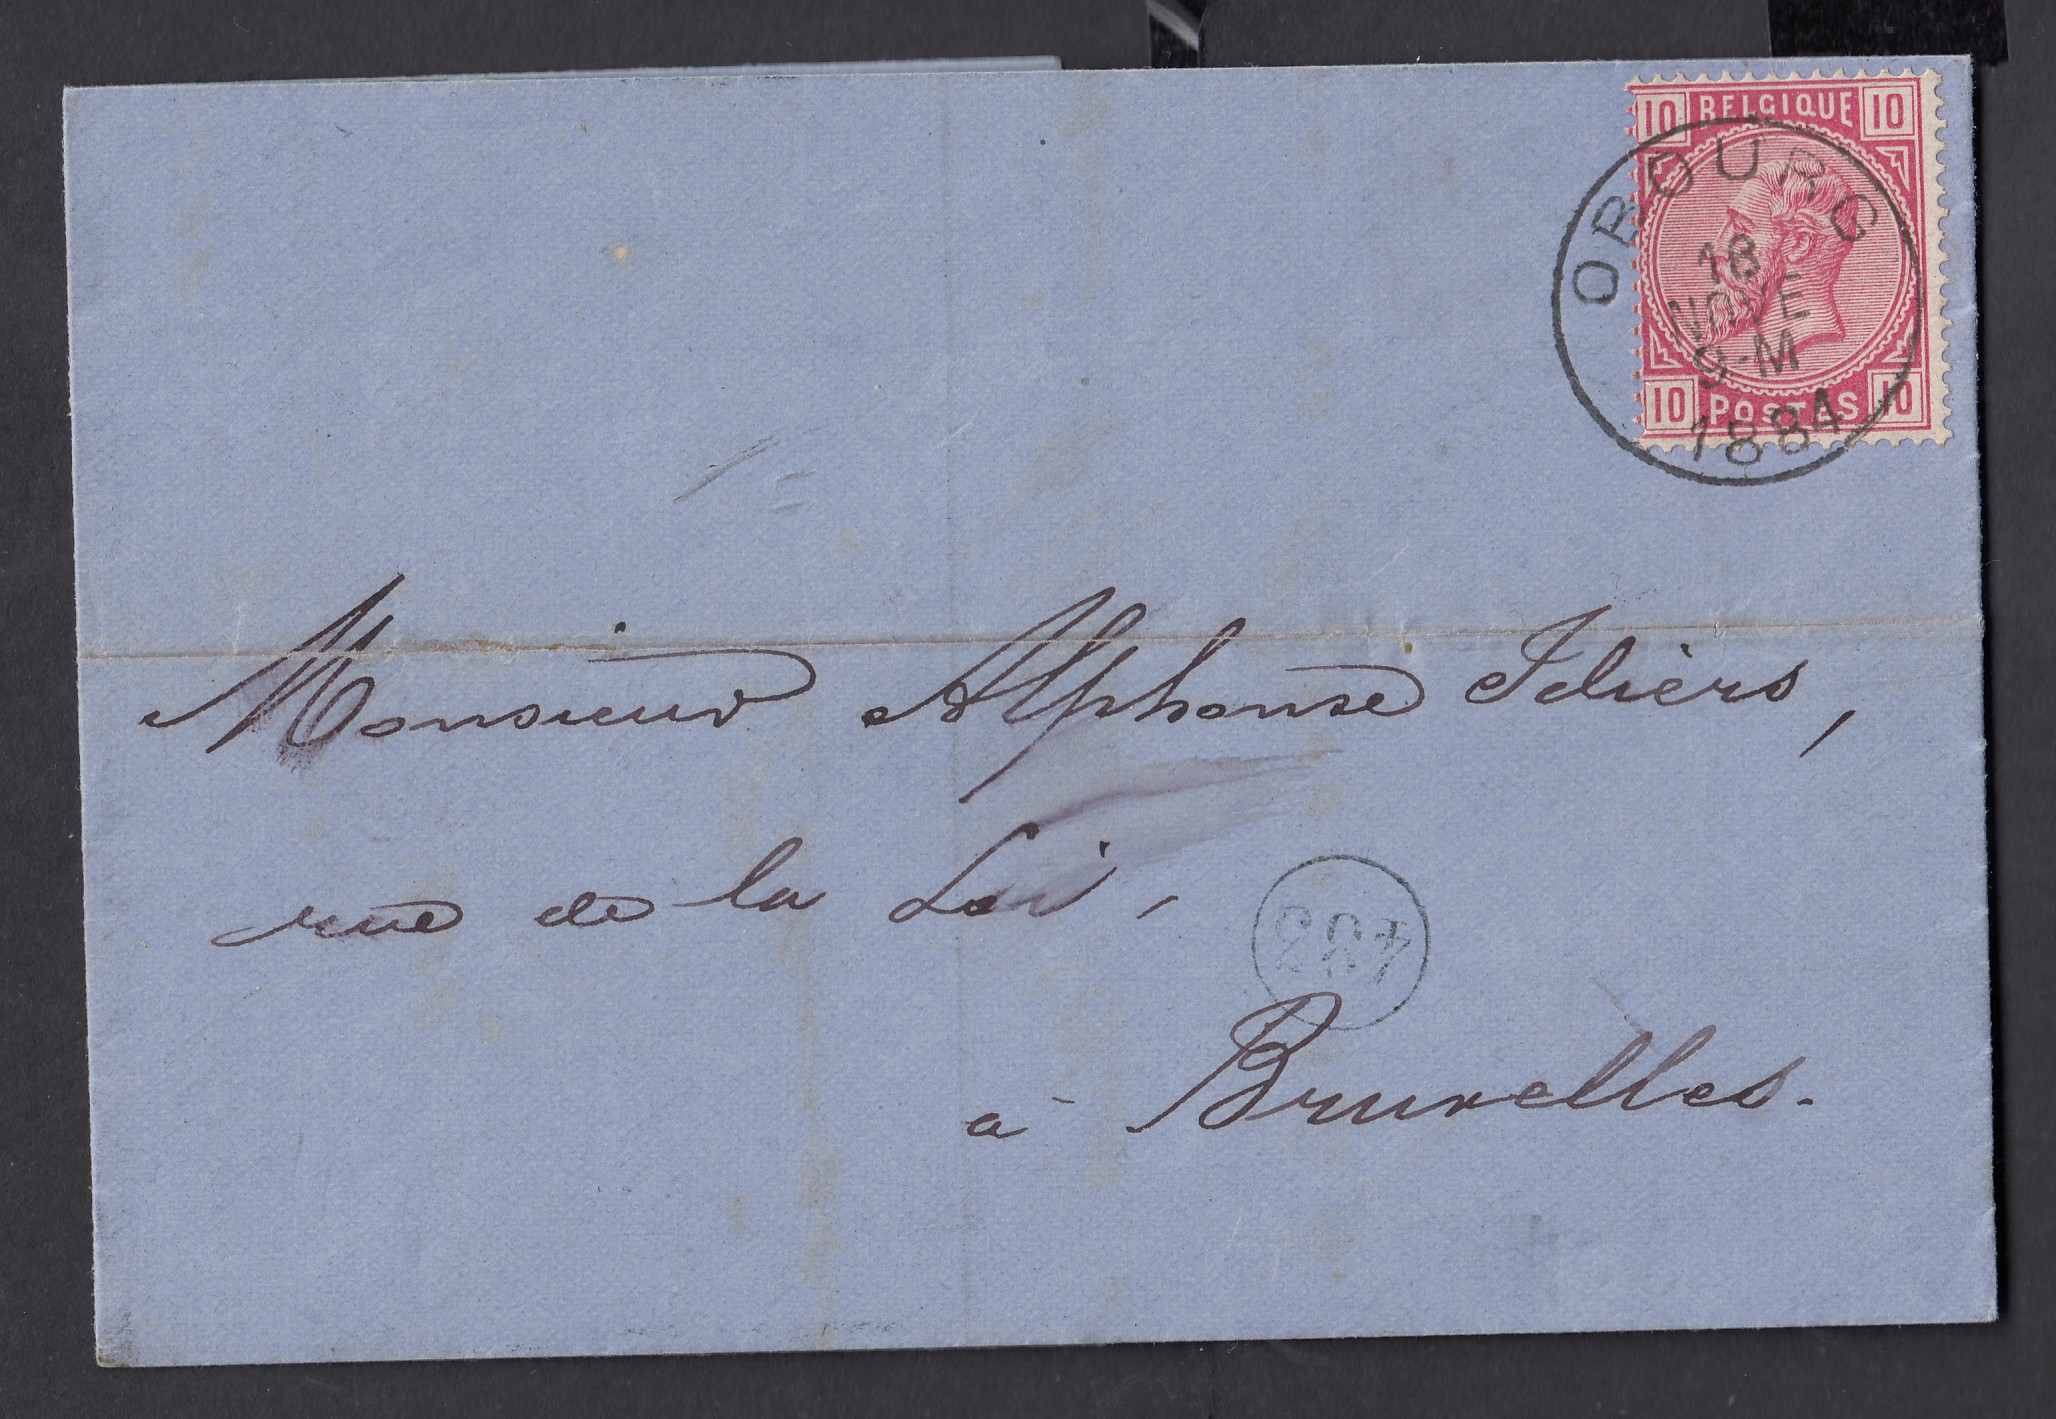 10 BELGIQUE 10
OBOURG
18
NOVE
9-M
1884
10 POSTES 10
Monsieur Alphonse Idiers,
rue de la Loi,
à Bruxelles.